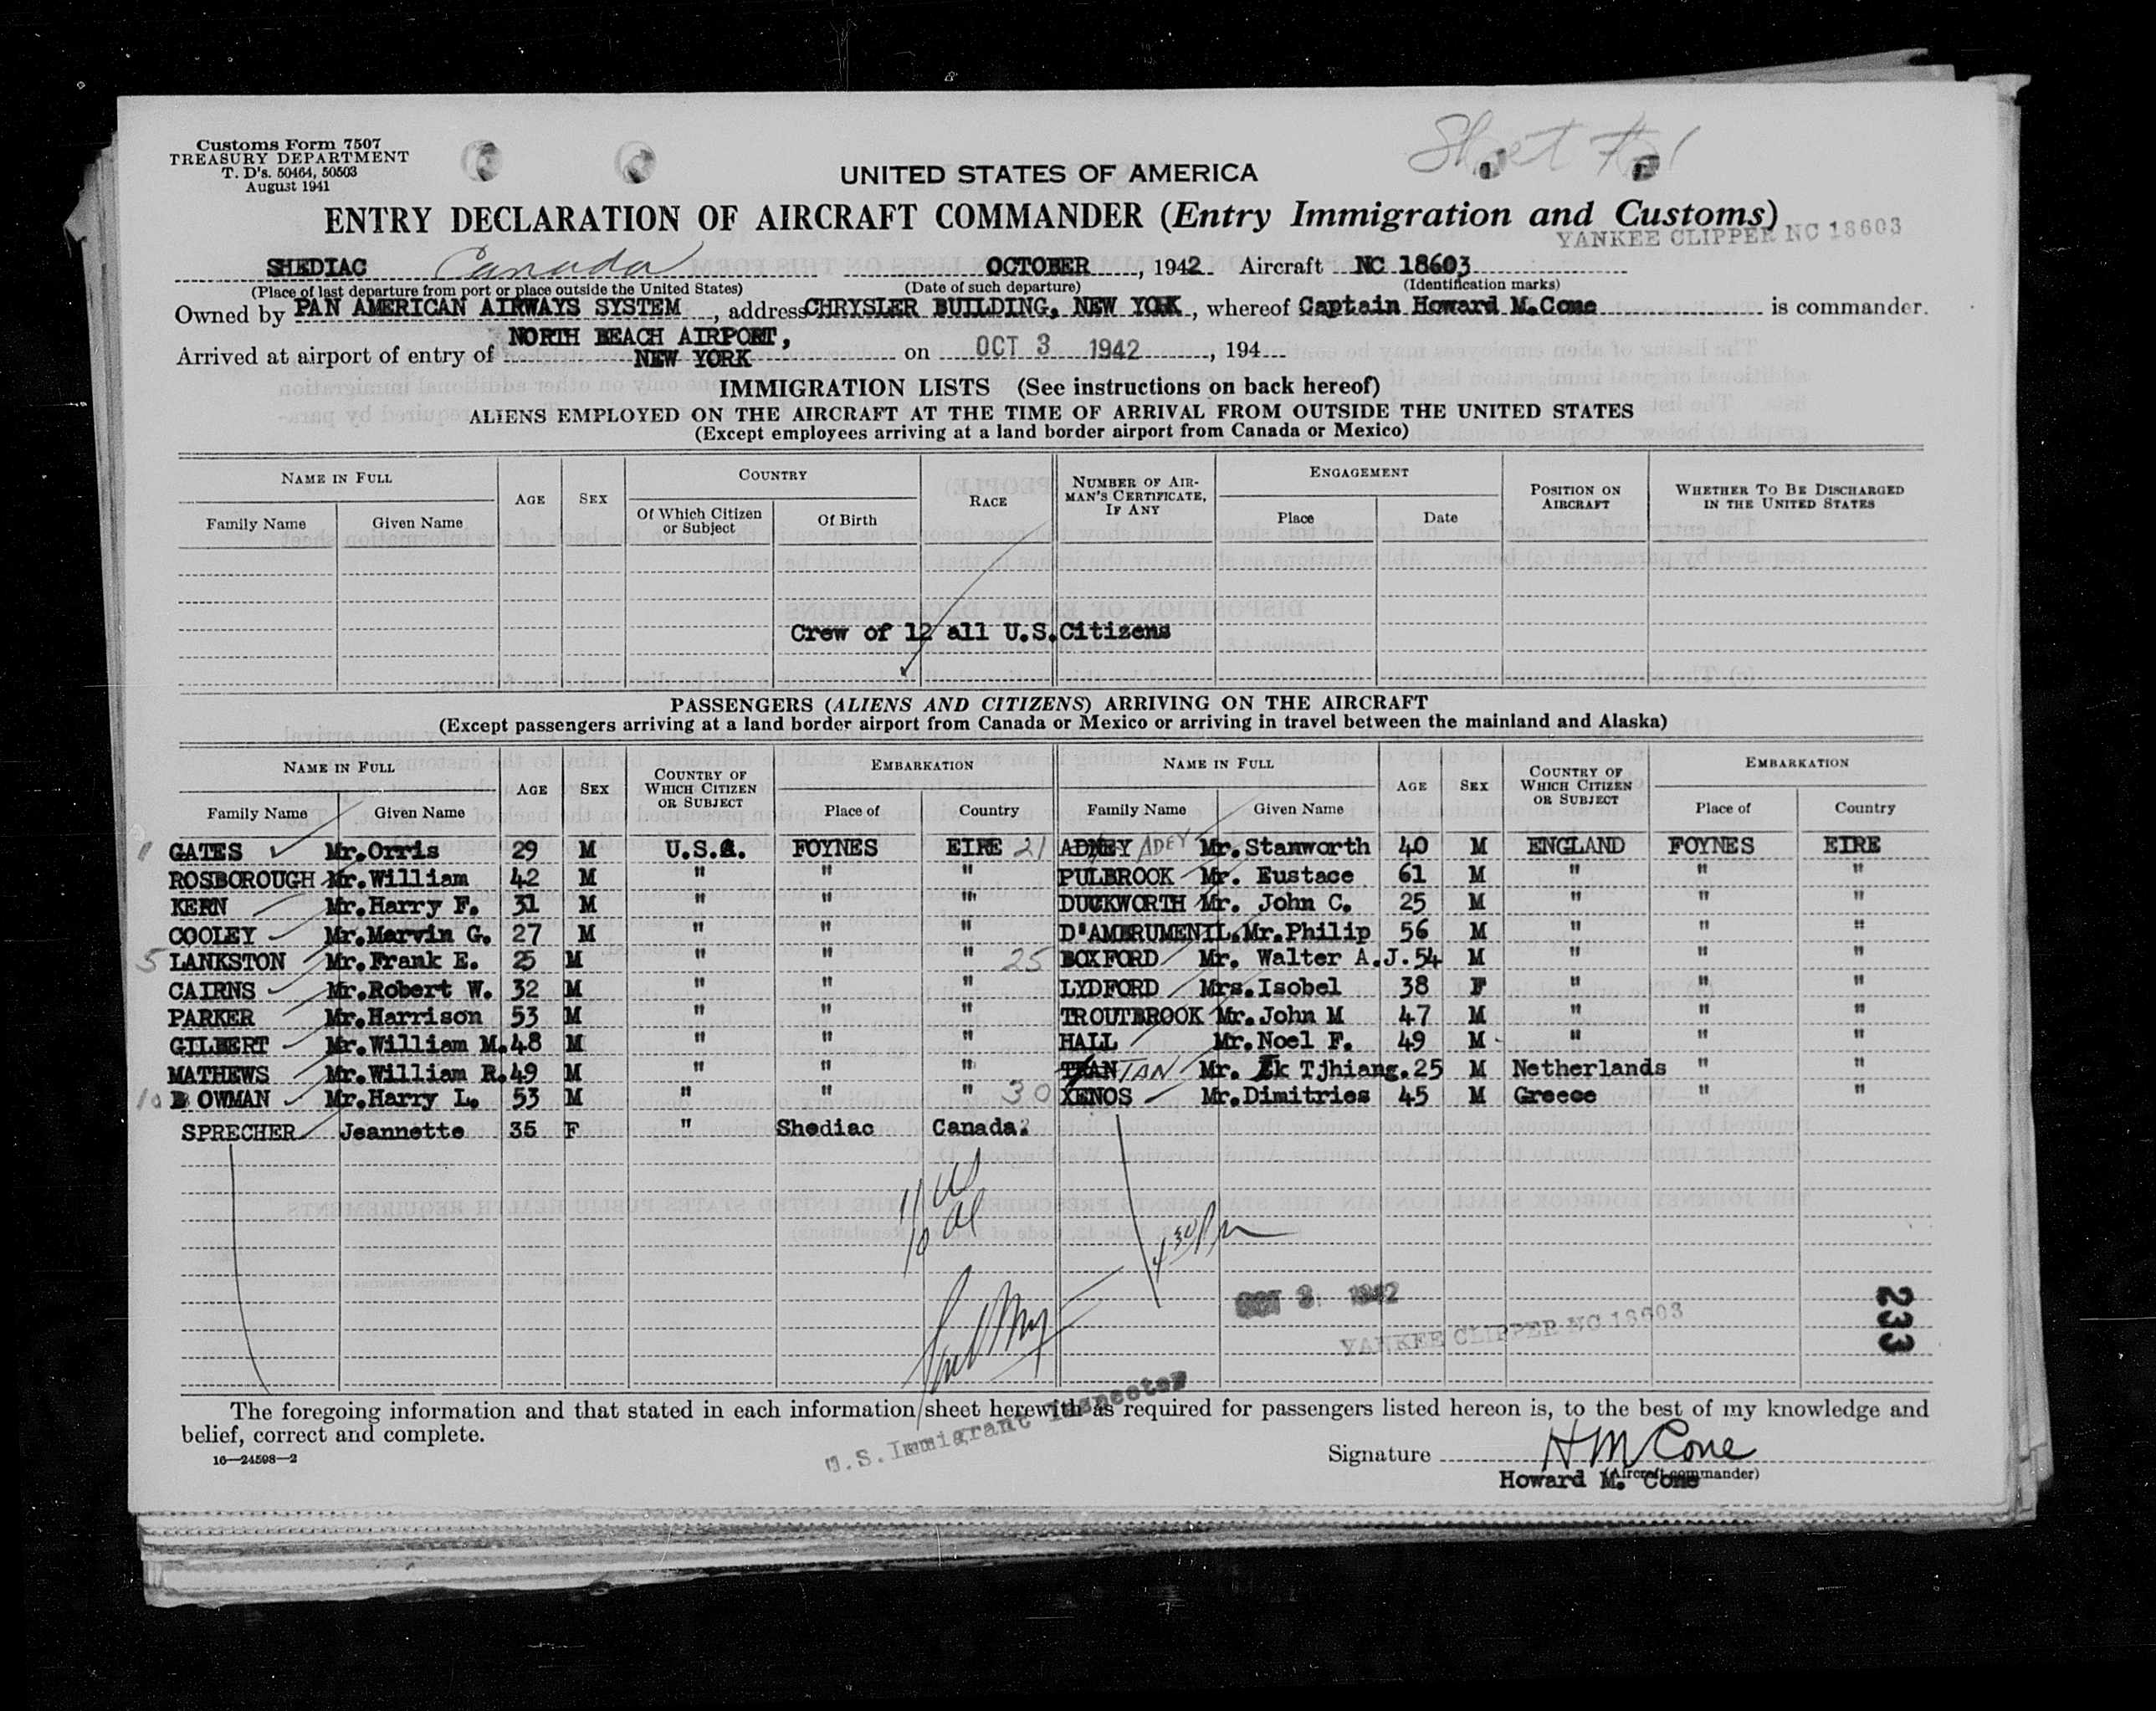 Sheet #1
Customs Form 7507
TREASURY DEPARTMENT
T. D's. 50464, 50503
August 1941
UNITED STATES OF AMERICA
ENTRY DECLARATION OF AIRCRAFT COMMANDER (Entry Immigration and Customs)
YANKEE CLIPPER NC 18603
SHEDIAC Canada OCTOBER, 1942 Aircraft NC 18603
(Place of last departure from port or place outside the United States) (Date of such departure) (Identification marks)
Owned by PAN AMERICAN AIRWAYS SYSTEM, address CHRYSLER BUILDING, NEW YORK, whereof Captain Howard M.Cone is commander.
NORTH BEACH AIRPORT,
Arrived at airport of entry of NEW YORK on OCT 3 1942, 194
IMMIGRATION LISTS (See instructions on back hereof)
ALIENS EMPLOYED ON THE AIRCRAFT AT THE TIME OF ARRIVAL FROM OUTSIDE THE UNITED STATES
(Except employees arriving at a land border airport from Canada or Mexico)
NAME IN FULL AGE SEX COUNTRY RACE NUMBER OF AIRMAN'S CERTIFICATE, IF ANY ENGAGEMENT POSITION ON AIRCRAFT WHETHER TO BE DISCHARGED IN THE UNITED STATES
Family Name Given Name Of Which Citizen or Subject Of Birth Place Date
Crew of 12 all U.S.Citizens
PASSENGERS (ALIENS AND CITIZENS) ARRIVING ON THE AIRCRAFT
(Except passengers arriving at a land border airport from Canada or Mexico or arriving in travel between the mainland and Alaska)
NAME IN FULL AGE SEX COUNTRY OF WHICH CITIZEN OR SUBJECT EMBARKATION NAME IN FULL AGE SEX COUNTRY OF WHICH CITIZEN OR SUBJECT EMBARKATION
Family Name Given Name Place of Country Family Name Given Name Place of Country
1 GATES Mr.Orris 29 M U.S.A. FOYNES EIRE 21 ADEY Mr.Stanworth 40 M ENGLAND FOYNES EIRE
ROSBOROUGH Mr.William 42 M " " " PULBROOK Mr. Eustace 61 M " " "
KERN Mr.Harry F. 31 M " " " DUCKWORTH Mr. John C. 25 M " " "
COOLEY Mr.Marvin G. 27 M " " " D'AMBRUMENIL.Mr.Philip 56 M " " "
5 LANKSTON Mr.Frank E. 25 M " " " 25 BOXFORD Mr. Walter A.J. 54 M " " "
CAIRNS Mr.Robert W. 32 M " " " LYDFORD Mrs.Isobel 38 F " " "
PARKER Mr.Harrison 53 M " " " TROUTBROOK Mr.John M 47 M " " "
GILBERT Mr.William M. 48 M " " " HALL Mr.Noel F. 49 M " " "
MATHEWS Mr.William R. 49 M " " " TAN Mr. Ek Tjhiang. 25 M Netherlands " "
10 BOWMAN Mr.Harry L. 53 M " " " 30 XENOS Mr.Dimitries 45 M Greece " "
SPRECHER Jeannette 35 F " Shediac Canada.
4 30 Pm
OCT 3 1942
YANKEE CLIPPER NC 18603
233
U.S.Immigrant Inspector
The foregoing information and that stated in each information sheet herewith as required for passengers listed hereon is, to the best of my knowledge and
belief, correct and complete.
16—24598—2
Signature H M Cone
(Aircraft commander)
Howard M. Cone